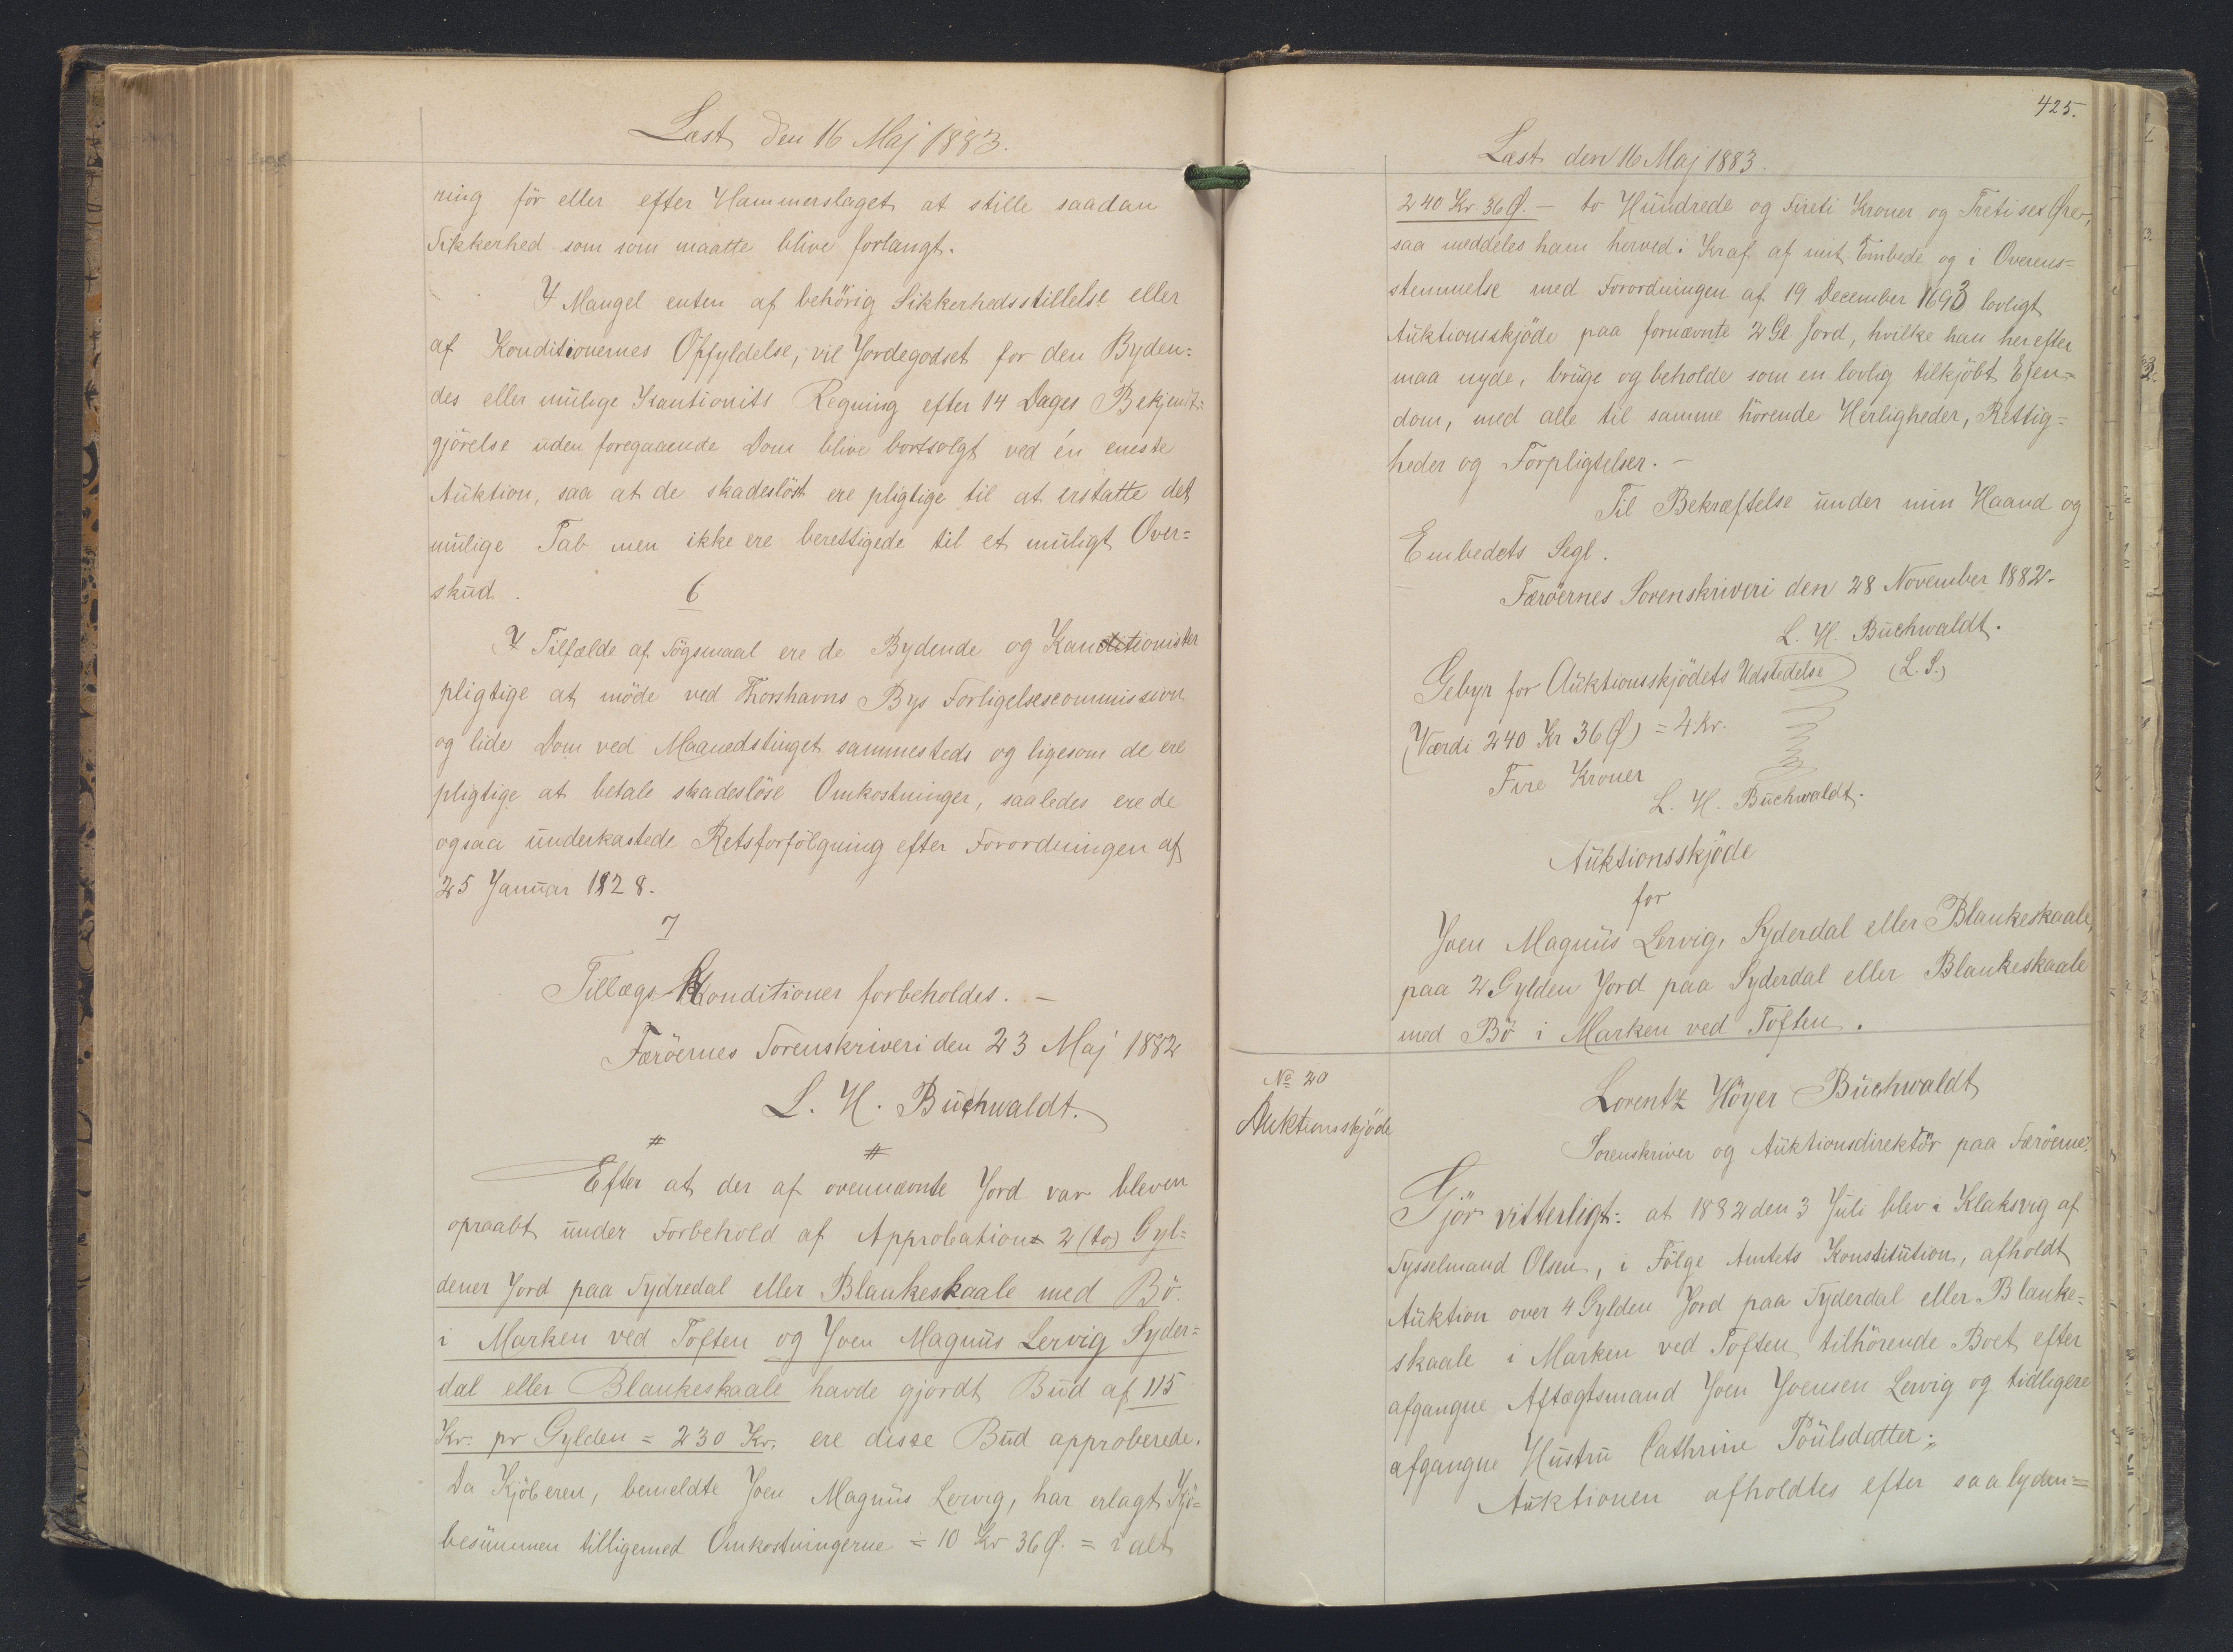 Læst den 16 Maj 1883.
ning för eller efter Hammerslaget at stille saadan
Sikkerhed som som maatte blive forlangt.
I Mangel enten af behörig Sikkerhedsstillelse eller
af Konditionernes Opfyldelse, vil Jordegodset for den Byden=
des eller mulige Kautionits Regning efter 14 Dages Bekjendt=
gjörelse uden foregaaende Dom blive bortsolgt ved én eneste
Auktion, saa at de skadeslöst ere pligtige til at erstatte det
mulige Tab men ikke ere berettigede til et muligt Over=
skud.
6
I Tilfælde af Sögsmaal ere de Bydende og Kautionister
pligtige at möde ved Thorshavns Bys Forligelsescommission
og lide Dom ved Maanedstinget sammesteds og ligesom de ere
pligtige at betale skadeslöse Omkostninger, saaledes ere de
ogsaa underkastede Retsforfölgning efter Forordningen af
25 Januar 1828.
7
Tillægs Konditioner forbeholdes. —
Færöernes Sorenskriveri den 23 Maj 1882
L. H. Buchwaldt.
Efter at der af ovennævnte Jord var bleven
opraabt under Forbehold af Approbation 2 (to) Gyl=
dener Jord paa Sydredal eller Blankeskaale med Bö
i Marken ved Toften og Joen Magnus Lervig Syder=
dal eller Blankeskaale havde gjordt Bud af 115
Kr. pr Gylden = 230 Kr. ere disse Bud approberede.
Da Kjöberen, bemeldte Joen Magnus Lervig, har erlagt Kjö=
besummen tilligemed Omkostningerne = 10 Kr 36 Ø. = ialt
425.
Læst den 16 Maj 1883.
240 Kr. 36 Ø. — to Hundrede og Fireti Kroner og Treti sex Ører,
saa meddeles ham herved i Kraf af mit Embede og i Overens=
stemmelse med Forordningen af 19 December 1693 lovligt
Auktionsskjöde paa fornævnte 2 Gl. Jord, hvilke han herefter
maa nyde, bruge og beholde som en lovlig tilkjöbt Ejen=
dom, med alle til samme hörende Herligheder, Rettig=
heder og Forpligtelser. —
Til Bekræftelse under min Haand og
Embedets Segl.
Færöernes Sorenskriveri den 28 November 1882.
L. H. Buchwaldt.
Gebyr for Auktionsskjödets Udstedelse (L. S.)
(Værdi 240 Kr 36 Ø) = 4 Kr.
Fire Kroner
L. H. Buchwaldt.
Auktionsskjöde
for
Joen Magnus Lervig, Syderdal eller Blankeskaale,
paa 2 Gylden Jord paa Syderdal eller Blankeskaale
med Bö i Marken ved Toften.
No 20
Auktionsskjöde
Lorentz Höyer Buchwaldt
Sorenskriver og Auktionsdirektör paa Færöerne.
Gjör vitterligt: at 1882 den 3 Juli blev i Klaksvig af
Sysselmand Olsen, i Fölge Amtets Konstitution, afholdt
Auktion over 4 Gylden Jord paa Syderdal eller Blanke=
skaale i Marken ved Toften, tilhörende Boet efter
afgangne Aftægtsmand Joen Joensen Lervig og tidligere
afgangne Hustru Cathrine Poulsdatter;
Auktionen afholdtes efter saalyden=